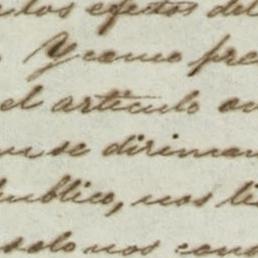 los efectos del
Y como pre
el artículo an
se diriman
publico, nos li
solo nos cons